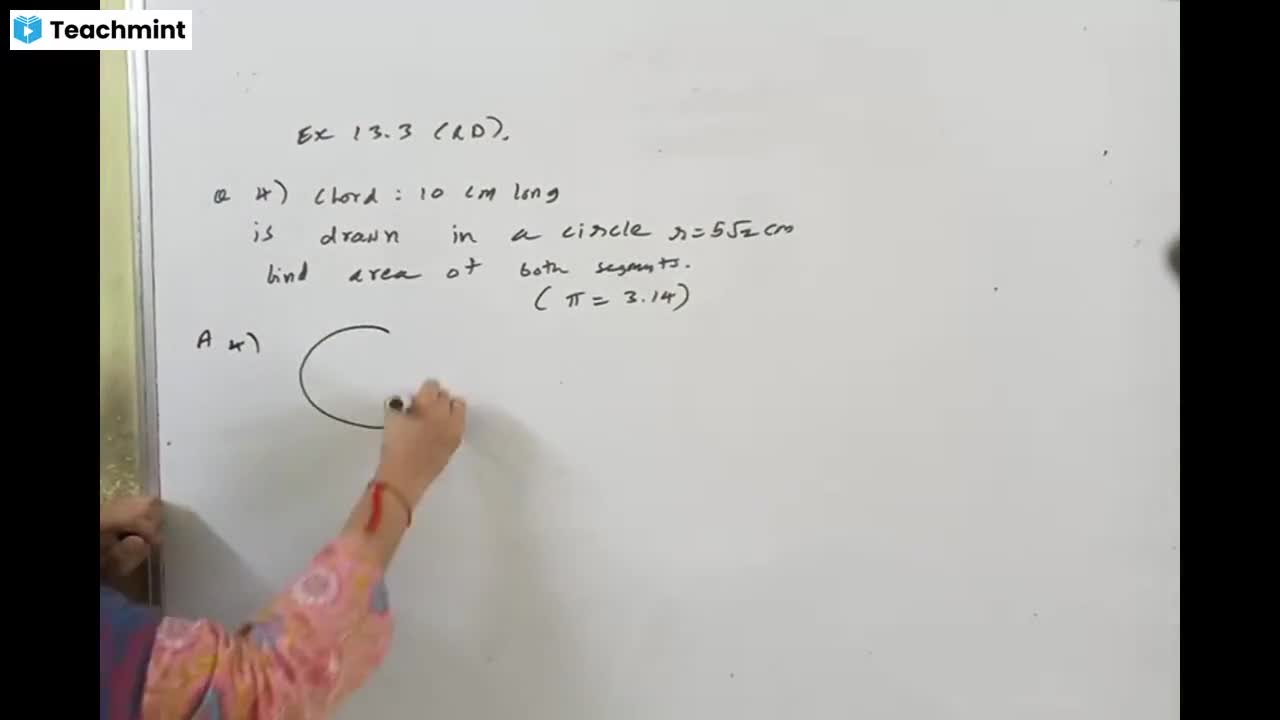 Teachmint
Ex 13.3 (RD).
Q 4) Chord : 10 cm long
is drawn in a circle r=5√2 cm
find area of both segments.
(π = 3.14)
A 4)